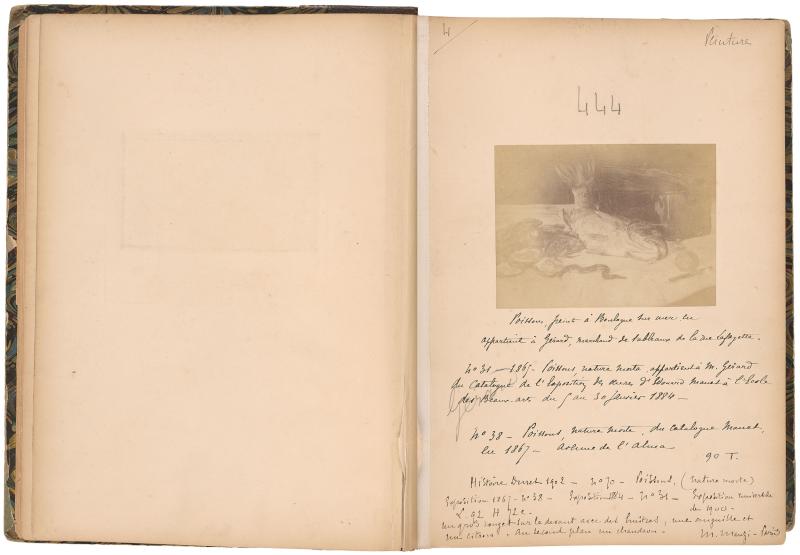 4
Peinture
444
Poissons, peint à Boulogne sur mer en
appartient à Gérard, marchand de tableaux de la rue Lafayette.
n° 31 — 1865 - Poissons, nature morte, appartient à M. Gérard
du Catalogue de l'Exposition des œuvres d'Edouard Manet à l'Ecole
des Beaux-arts du 5 au 30 Janvier 1884 —
n° 38 — Poissons, nature morte, du Catalogue Manet,
en 1867 — Avenue de l'Alma
90 T.
Histoire Duret 1902 — n° 70 — Poissons, (nature morte)
Exposition 1867 - n° 38 — Exposition 1884 — n° 31 — Exposition universelle
de 1900 —
L 92 H 72 c —
un gros rouget sur le devant avec des huîtres, une anguille et
un citron. Au second plan un chaudron.
M. Manzi - Paris